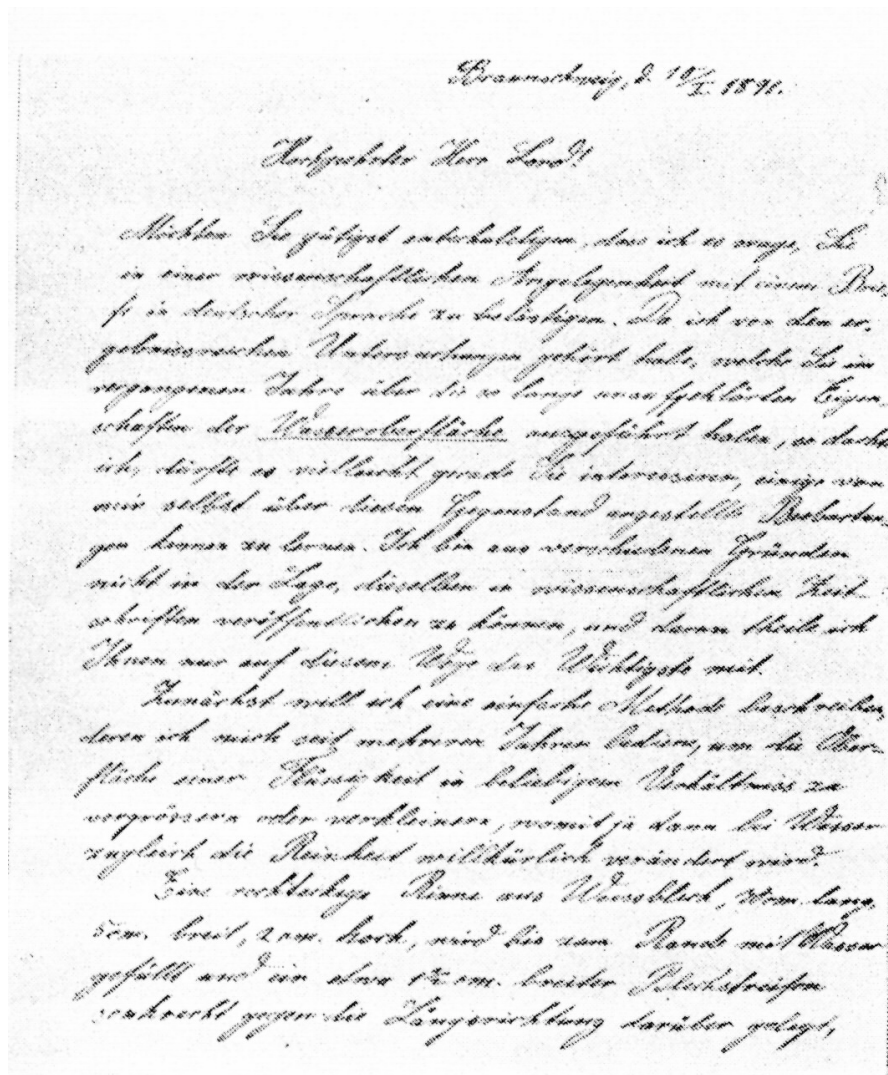 Braunschweig, d. 10/I. 1891.
Hochgeehrter Herr Lord!
Möchten Sie gütigst entschuldigen, dass ich es wage, Sie
in einer wissenschaftlichen Angelegenheit mit einem Brie-
fe in deutscher Sprache zu belästigen. Da ich von dem er-
gebnissreichen Untersuchungen gehört habe, welche Sie im
vergangenen Jahre über die so lange unaufgeklärten Eigen-
schaften der Wasseroberfläche ausgeführt haben, so dachte
ich, dürfte es vielleicht gerade Sie interessiren, einige von
mir selbst über diesen Gegenstand angestellte Beobachtun-
gen kennen zu lernen. Ich bin aus verschiedenen Gründen
nicht in der Lage, dieselben in wissenschaftlichen Zeit-
schriften veröffentlichen zu können, und darum theile ich
Ihnen nur auf diesem Wege das Wichtigste mit
Zunächst will ich eine einfache Methode beschreiben,
deren ich mich seit mehreren Jahren bediene, um die Ober-
fläche einer Flüssigkeit in beliebigem Verhältniss zu
vergrössern oder verkleinern, womit ja dann bei Wasser
zugleich die Reinheit willkürlich verändert wird.
Eine rechteckige Rinne aus Weissblech, lang,
5 cm. breit, 2 cm. hoch, wird bis zum Rande mit Wasser
gefüllt und ein etwa 1½ cm. breiter Blechstreifen
senkrecht gegen die Längsrichtung darüber gelegt,